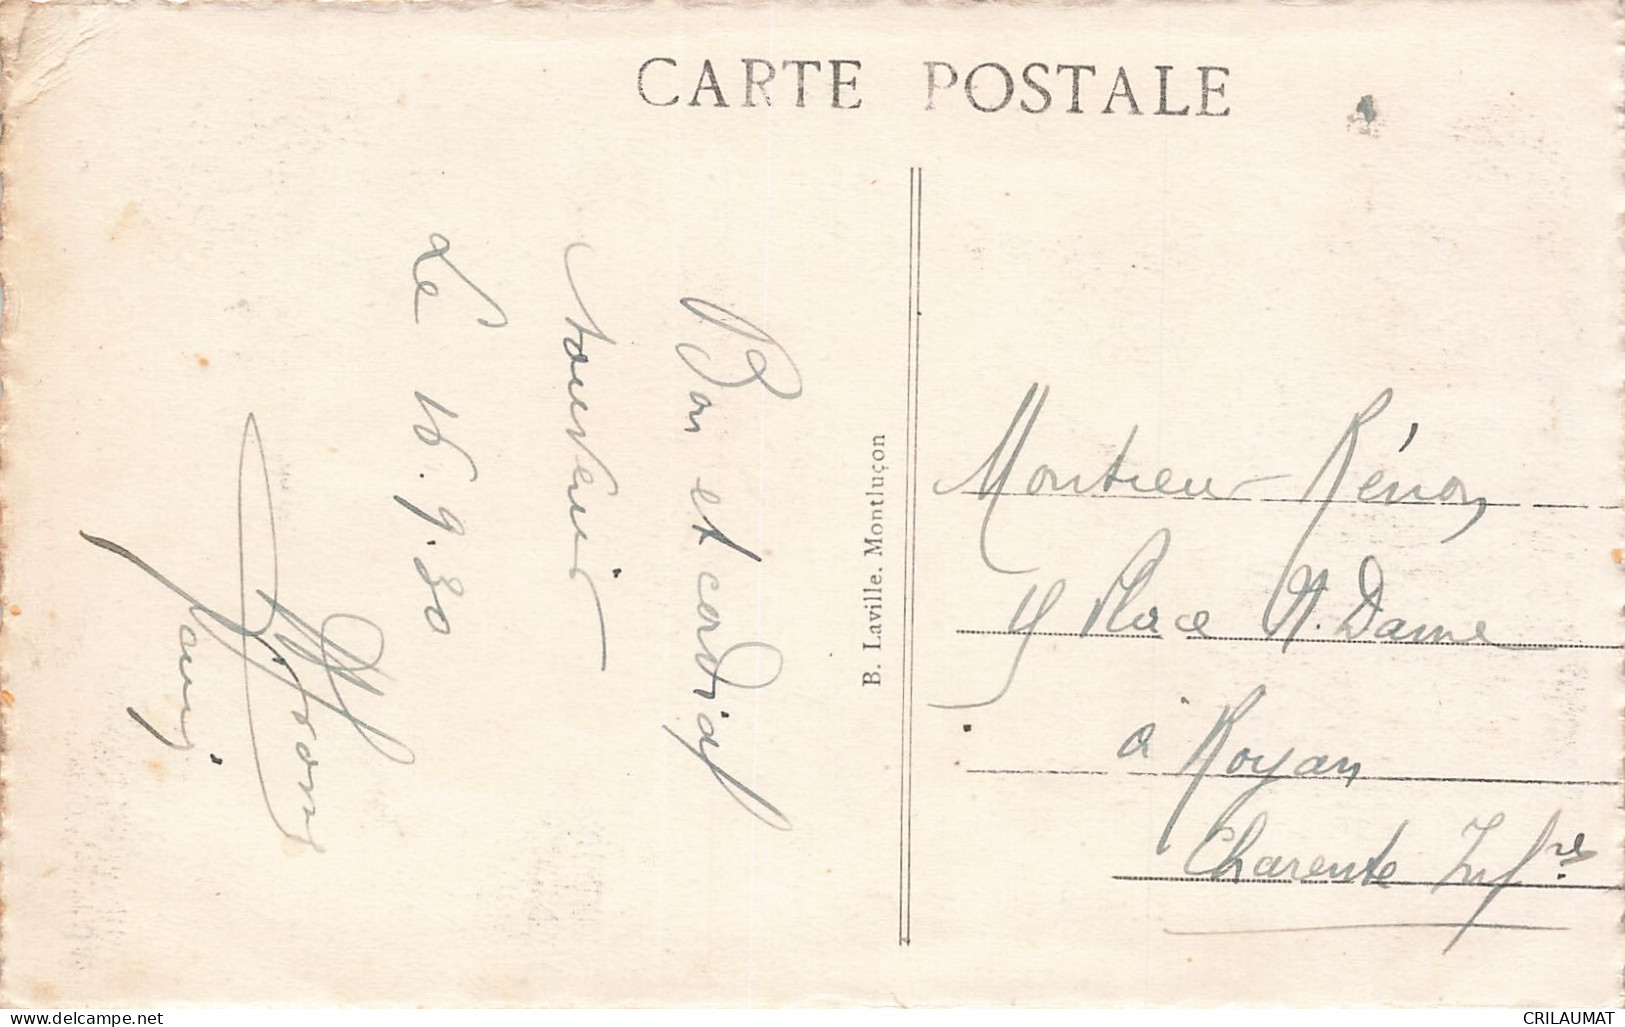 CARTE POSTALE
Bon et cordial
souvenir
Le 16.9.30
B. Laville. Montluçon
Monsieur Rénon
9 Place N. Dame
à Royan
Charente Infre
www.delcampe.net
CRILAUMAT